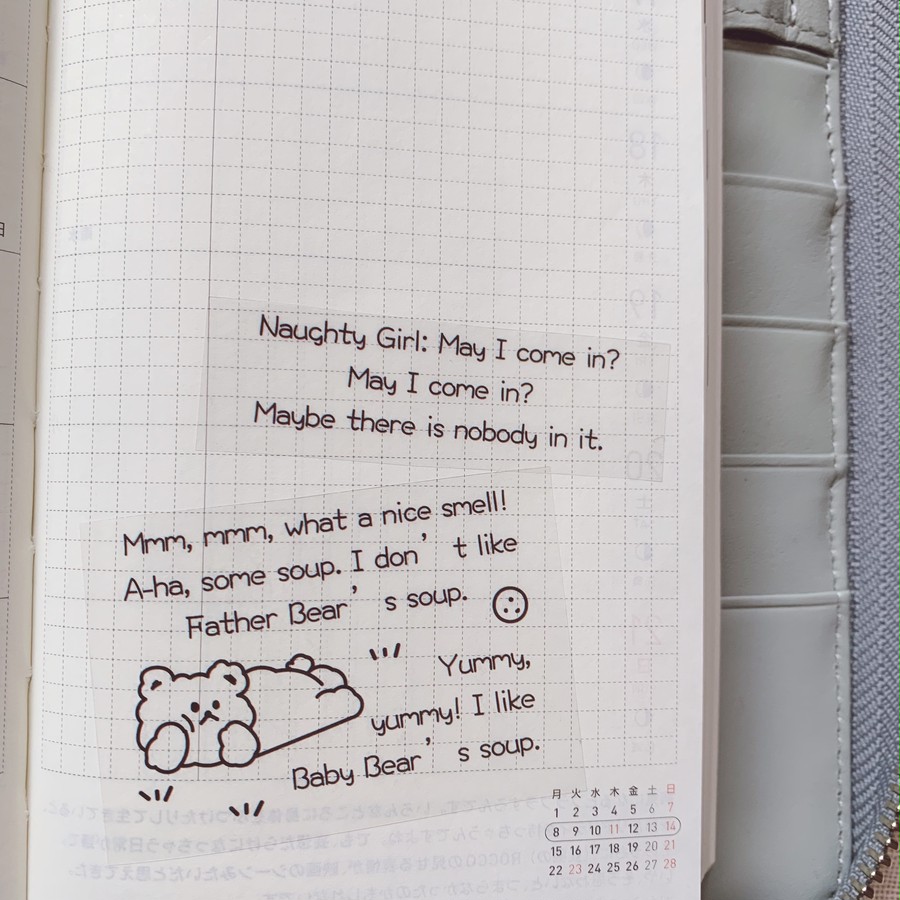 Naughty Girl: May I come in?
May I come in?
Maybe there is nobody in it.
Mmm, mmm, what a nice smell!
A-ha, some soup. I don’ t like
Father Bear’ s soup.
Yummy,
yummy! I like
Baby Bear’ s soup.
月 火 水 木 金 土 日
1 2 3 4 5 6 7
8 9 10 11 12 13 14
15 16 17 18 19 20 21
22 23 24 25 26 27 28